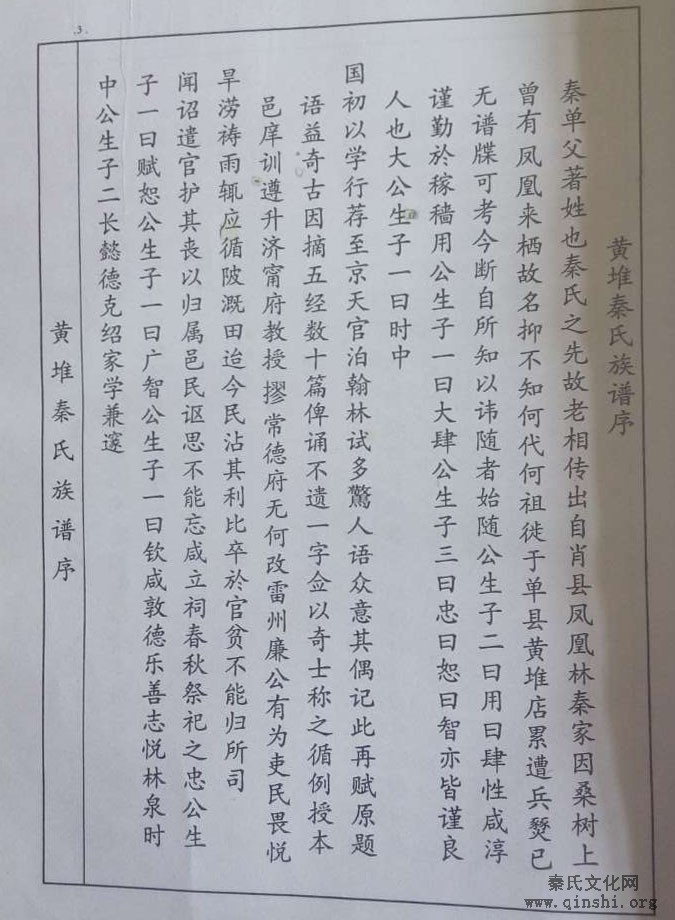 .3.
黄堆秦氏族谱序
秦单父著姓也秦氏之先故老相传出自肖县凤凰林秦家因桑树上
曾有凤凰来栖故名抑不知何代何祖徙于单县黄堆店累遭兵燹已
无谱牒可考今断自所知以讳随者始随公生子二曰用曰肆性咸淳
谨勤於稼穑用公生子一曰大肆公生子三曰忠曰恕曰智亦皆谨良
人也大公生子一曰时中
国初以学行荐至京天官泊翰林试多驚人语众意其偶记此再赋原题
语益奇古因摘五经数十篇俾诵不遗一字佥以奇士称之循例授本
邑庠训遵升济甯府教授摎常德府无何改雷州廉公有为吏民畏悦
旱涝祷雨辄应循陂溉田迨今民沾其利比卒於官贫不能归所司
闻诏遣官护其丧以归属邑民讴思不能忘咸立祠春秋祭祀之忠公生
子一曰赋恕公生子一曰广智公生子一曰钦咸敦德乐善志悦林泉时
中公生子二长懿德克绍家学兼邃
黄堆秦氏族谱序
秦氏文化网
www.qinshi.org